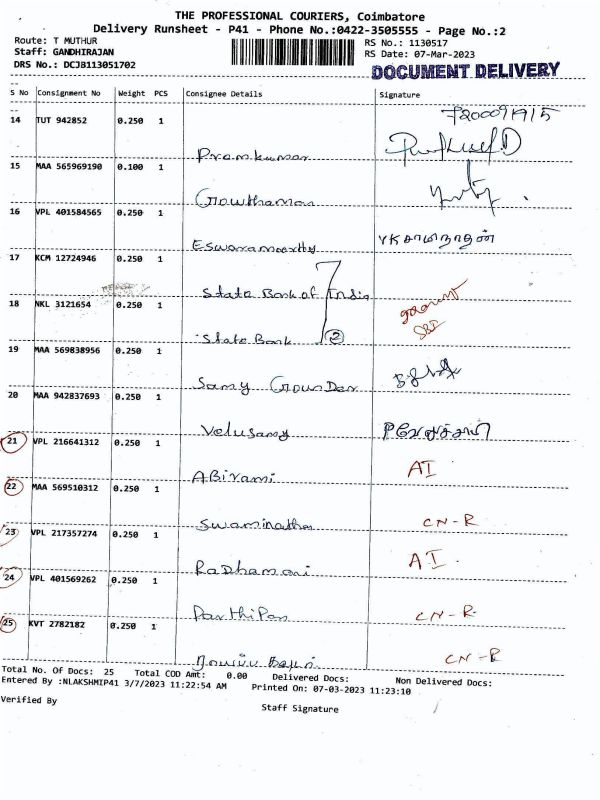 THE PROFESSIONAL COURIERS, Coimbatore
Delivery Runsheet - P41 - Phone No.:0422-3505555 - Page No.:2
Route: T MUTHUR
RS No.: 1130517
Staff: GANDHIRAJAN
RS Date: 07-Mar-2023
DRS No.: DCJB113051702
DOCUMENT DELIVERY
S No Consignment No Weight PCS Consignee Details Signature
14 TUT 942852 0.250 1
Premkumar
15 MAA 565969190 0.100 1
Gowthaman
16 VPL 401584565 0.250 1
Eswaramoorthy
17 KCM 12724946 0.250 1
State Bank of India
18 NKL 3121654 0.250 1
State Bank 2
19 MAA 569838956 0.250 1
Samy Gounder
20 MAA 942837693 0.250 1
Velusamy
21 VPL 216641312 0.250 1
ABirami AI
22 MAA 569510312 0.250 1
Swaminathan CN-R
23 VPL 217357274 0.250 1
Radhamani A.I.
24 VPL 401569262 0.250 1
ParthiPan CN-R
25 KVT 2782182 0.250 1
CN-R
Total No. Of Docs: 25 Total COD Amt: 0.00 Delivered Docs: Non Delivered Docs:
Entered By :NLAKSHMIP41 3/7/2023 11:22:54 AM Printed On: 07-03-2023 11:23:10
Verified By
Staff Signature